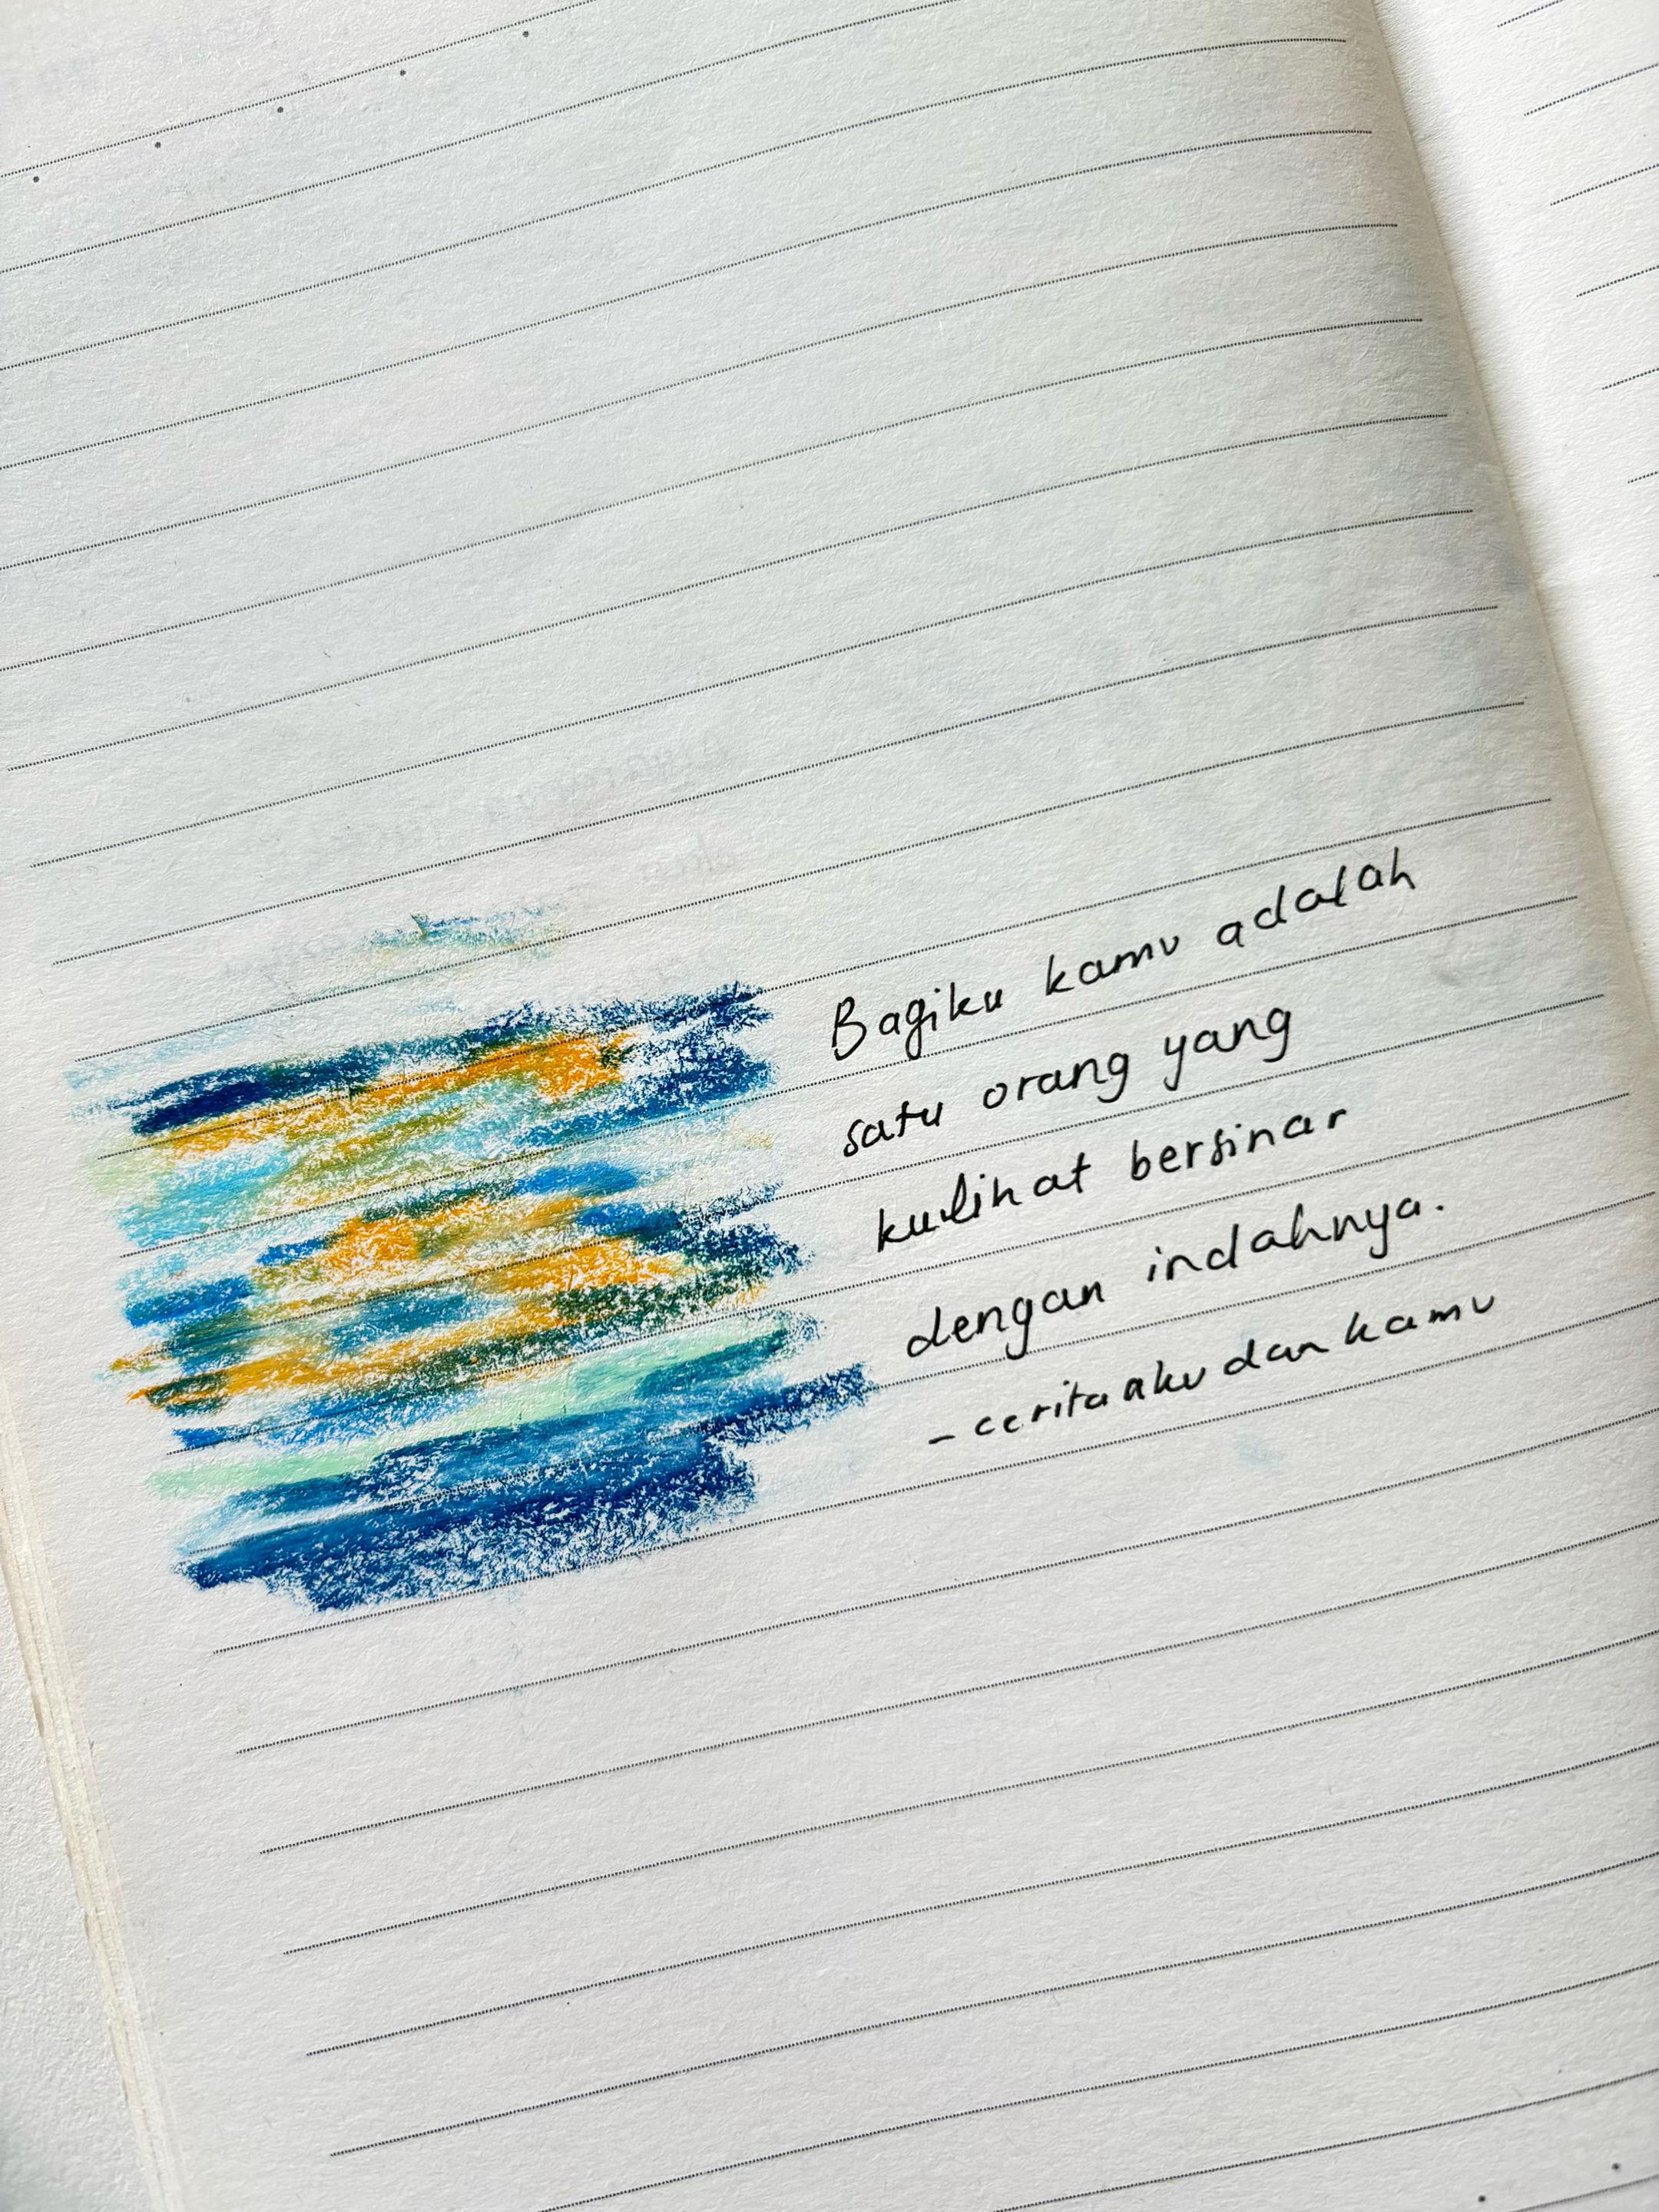 Bagiku kamu adalah
satu orang yang
kulihat bersinar
dengan indahnya.
- ceritaakudankamu